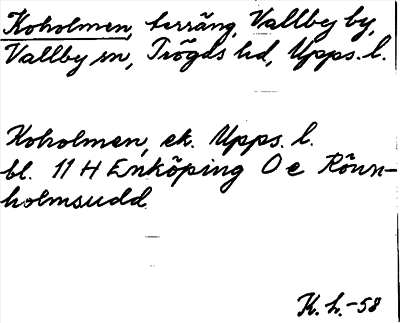 Koholmen, terräng, Vallby by,
Vallby sn, Trögds hd, Upps. l.
Koholmen, ek. Upps. l.
bl. 11 H Enköping O e Rönn-
holmsudd.
K. h. -58